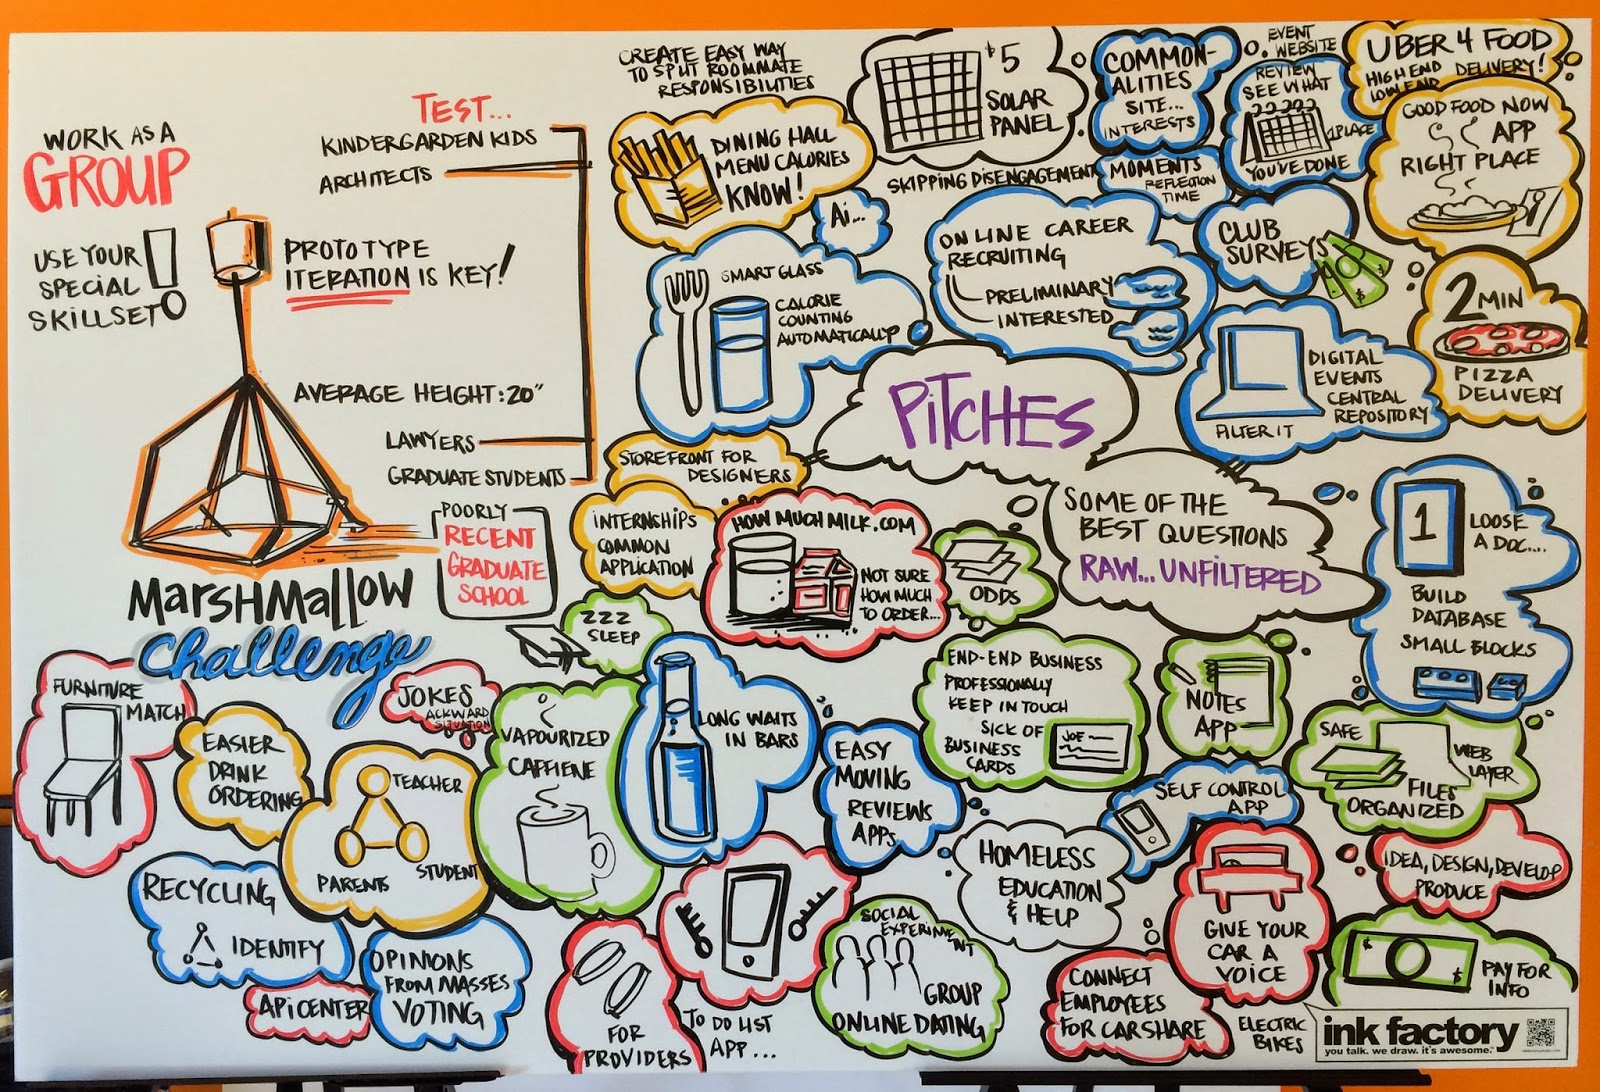 WORK AS A
GROUP
USE YOUR
SPECIAL
SKILLSET
!
TEST...
KINDERGARDEN KIDS
ARCHITECTS
PROTOTYPE
ITERATION IS KEY!
AVERAGE HEIGHT: 20"
LAWYERS
GRADUATE STUDENTS
POORLY
RECENT
GRADUATE
SCHOOL
MARSHMALLOW
challenge
CREATE EASY WAY
TO SPLIT ROOMMATE
RESPONSIBILITIES
DINING HALL
MENU CALORIES
KNOW!
$5
SOLAR
PANEL
COMMON-
ALITIES
SITE...
INTERESTS
EVENT
WEBSITE
REVIEW
SEE WHAT
1 PLACE
YOU'VE DONE
UBER 4 FOOD
HIGH END DELIVERY!
LOW END
GOOD FOOD NOW
APP
RIGHT PLACE
SKIPPING DISENGAGEMENT
MOMENTS
REFLECTION
TIME
Ai...
ON LINE CAREER
RECRUITING
PRELIMINARY
INTERESTED
CLUB
SURVEYS
SMART GLASS
CALORIE
COUNTING
AUTOMATICALLY
2 MIN
PIZZA
DELIVERY
DIGITAL
EVENTS
CENTRAL
REPOSITORY
FILTER IT
PITCHES
STOREFRONT FOR
DESIGNERS
SOME OF THE
BEST QUESTIONS
RAW... UNFILTERED
INTERNSHIPS
COMMON
APPLICATION
HOW MUCH MILK.COM
NOT SURE
HOW MUCH
TO ORDER...
ODDS
1
LOOSE
A DOC....
BUILD
DATABASE
SMALL BLOCKS
ZZZ
SLEEP
END-END BUSINESS
PROFESSIONALLY
KEEP IN TOUCH
SICK OF
BUSINESS
CARDS
JOE
NOTES
APP
FURNITURE
MATCH
JOKES
ACKWARD
SITUATION
EASIER
DRINK
ORDERING
TEACHER
PARENTS
STUDENT
VAPOURIZED
CAFFIENE
LONG WAITS
IN BARS
EASY
MOVING
REVIEWS
APPS
SELF CONTROL
APP
SAFE
WEB
LAYER
FILES
ORGANIZED
HOMELESS
EDUCATION
& HELP
IDEA, DESIGN, DEVELOP
PRODUCE
GIVE YOUR
CAR A
VOICE
RECYCLING
IDENTIFY
OPINIONS
FROM MASSES
VOTING
APICENTER
FOR
PROVIDERS
TO DO LIST
APP...
SOCIAL
EXPERIMENT
GROUP
ONLINE DATING
CONNECT
EMPLOYEES
FOR CAR SHARE
ELECTRIC
BIKES
$
$
PAY FOR
INFO
ink factory
you talk. we draw. it's awesome.